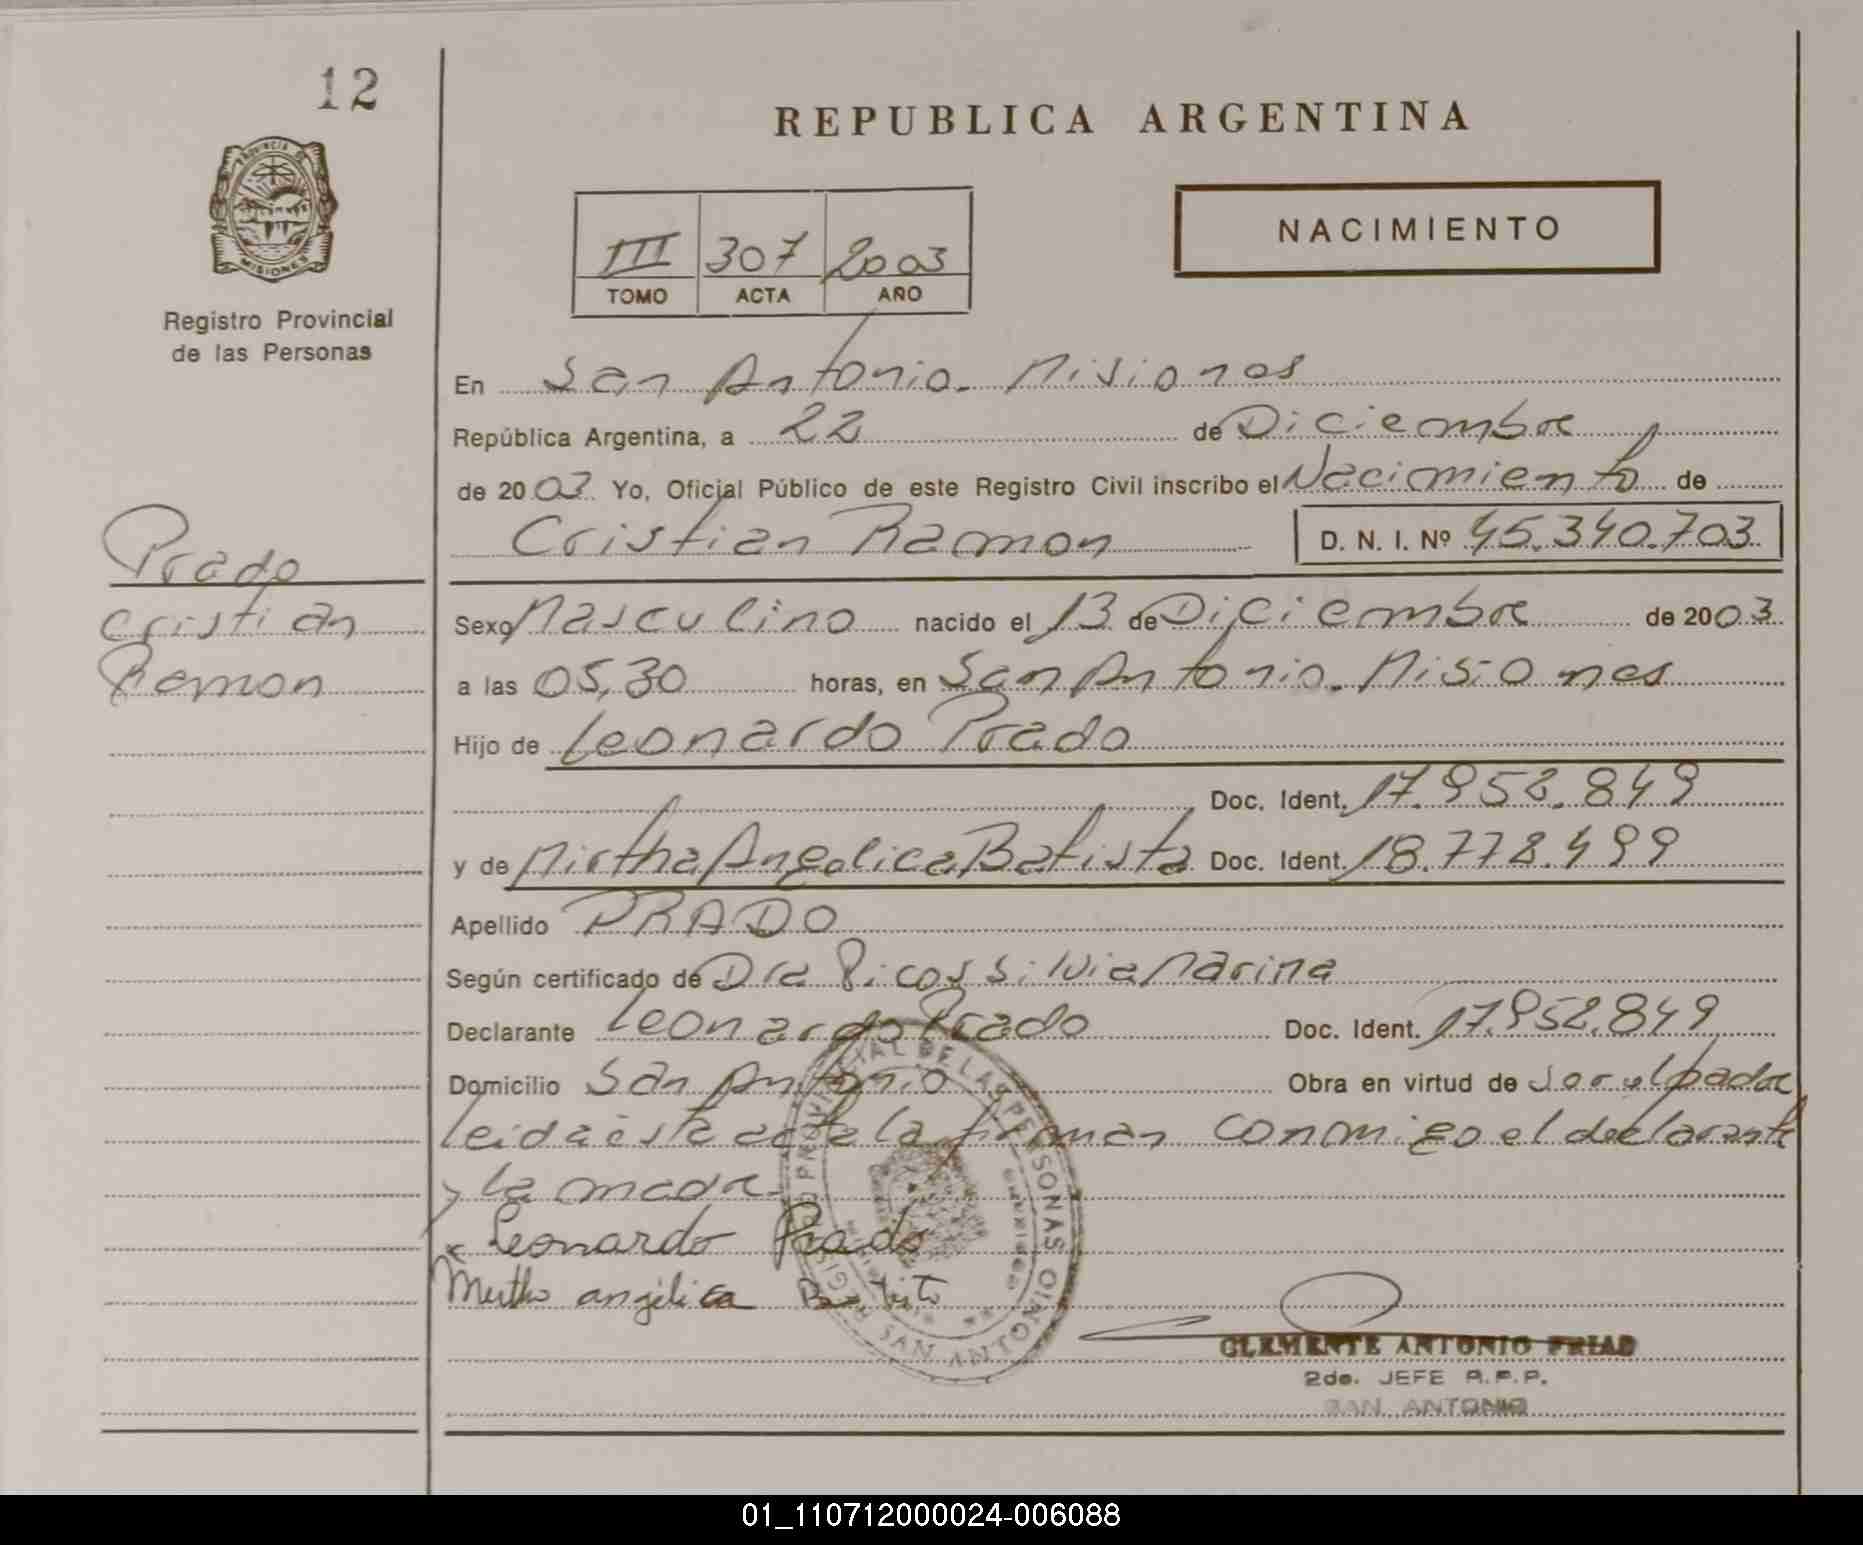 12
REPUBLICA ARGENTINA
PROVINCIA DE
MISIONES
Registro Provincial
de las Personas
NACIMIENTO
III 307 2003
TOMO ACTA AÑO
En San Antonio. Misiones
República Argentina, a 22 de Diciembre
de 2003 Yo, Oficial Público de este Registro Civil inscribo el Nacimiento de
Cristian Ramon D. N. I. Nº 45.340.703
Prado
Cristian
Ramon
Sexo Masculino nacido el 13 de Diciembre de 2003
a las 05,30 horas, en San Antonio. Misiones
Hijo de Leonardo Prado
Doc. Ident. 17.952.849
y de Mirtha Angelica Batista Doc. Ident. 18.778.499
Apellido PRADO
Según certificado de Dra Picos Silvia Marina
Declarante Leonardo Prado Doc. Ident. 17.952.849
Domicilio San Antonio Obra en virtud de ser el padre
leida esta acta la firman conmigo el declarante
y la madre.
Leonardo Prado
Mirtha angélica Batista
REGISTRO PROVINCIAL DE LAS PERSONAS
SAN ANTONIO
CLEMENTE ANTONIO FRIAS
2do. JEFE R.P.P.
SAN ANTONIO
01_110712000024-006088